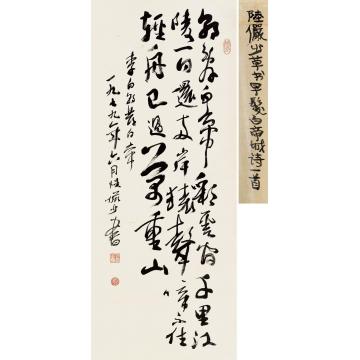 陸儼少草书早發白帝城詩一首
朝辭白帝彩雲間千里江
陵一日還兩岸猿聲啼不住
輕舟已過萬重山
李白早發白帝
一九七九年六月陸儼少書